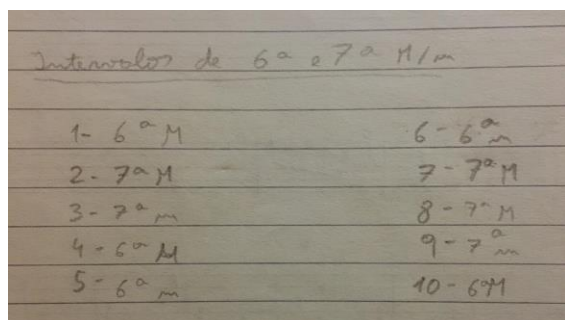 Intervalos de 6ª e 7ª M/m
1- 6ª M
2- 7ª M
3- 7ª m
4- 6ª M
5- 6ª m
6- 6ª m
7- 7ª M
8- 7ª M
9- 7ª m
10- 6ªM